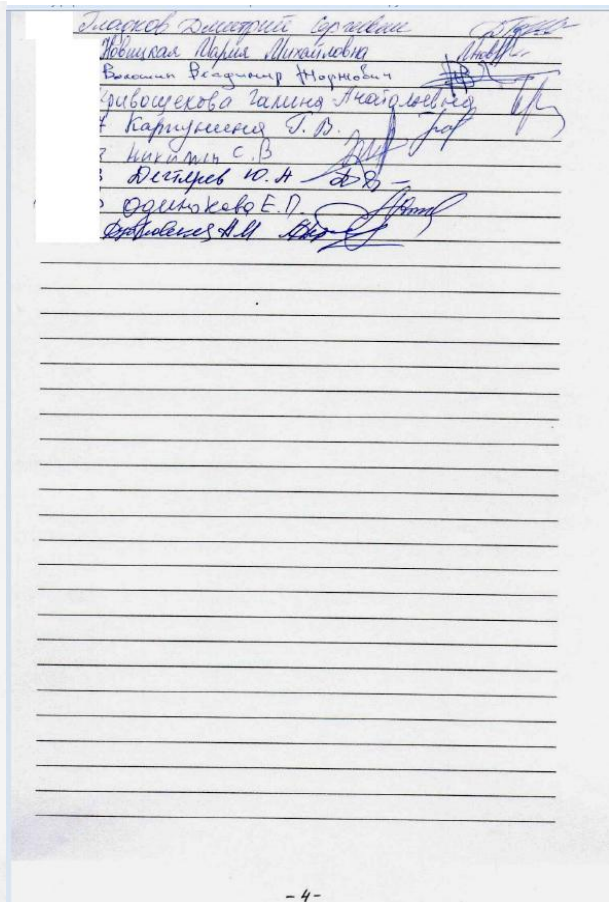 Гладков Дмитрий Сергеевич
Новицкая Мария Михайловна
Волошин Владимир Жоржович
Кривощекова Галина Анатольевна
Карпунина Г. В.
Никитин С. В
Дегтярев Ю. А
Одинокова Е. П.
А М
- 4 -